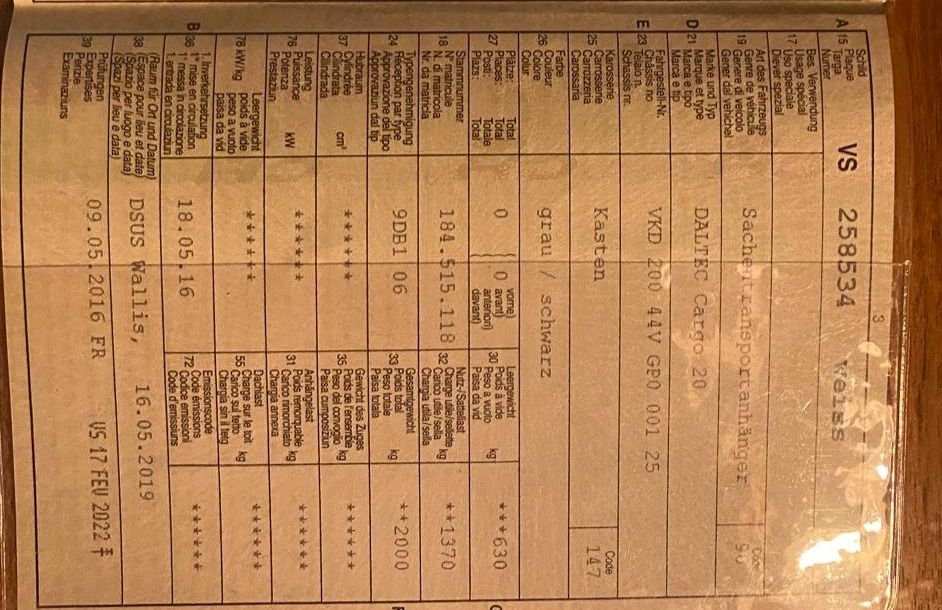 3
A 15 Schild
Plaque
Targa
Numer
VS 258534 weiss
17 Bes. Verwendung
Usage spécial
Uso speciale
Diever spezial
19 Art des Fahrzeugs
Genre de véhicule
Genere di veicolo
Gener dal vehichel
Sachentransportanhänger
Code
90
D 21 Marke und Typ
Marque et type
Marca e tipo
Marca e tip
DALTEC Cargo 20
E 23 Fahrgestell-Nr.
Châssis no
Telaio n.
Schassis nr.
VKD 200 44V GP0 001 25
25 Karosserie
Carrosserie
Carrozzeria
Carossaria
Kasten
Code
147
26 Farbe
Couleur
Colore
Colur
grau / schwarz
27 Plätze: Total
Places: Total
Posti: Totale
Plazs: Total
0
0 vorne)
avant)
anteriori)
davant)
30 Leergewicht
Poids à vide
Peso a vuoto
Paisa da vid
kg
***630
18 Stammnummer
Nº matricule
N. di matricola
Nr. da matricla
184.515.118
32 Nutz-/Sattellast
Charge utile/sellette
Carico utile/sella
Chargia utila/sella
kg
**1370
24 Typengenehmigung
Réception par type
Approvazione del tipo
Approvaziun da tip
9DB1 06
33 Gesamtgewicht
Poids total
Peso totale
Paisa totala
kg
**2000
37 Hubraum
Cylindrée
Cilindrata
Cilindrada
cm³
******
35 Gewicht des Zuges
Poids de l'ensemble
Peso del convoglio
Paisa cumposiziun
kg
******
76 Leistung
Puissance
Potenza
Prestaziun
kW
******
31 Anhängelast
Poids remorquable
Carico rimorchiato
Chargia annexa
kg
******
78 kW/kg
Leergewicht
poids à vide
peso a vuoto
paisa da vid
******
55 Dachlast
Charge sur le toit
Carico sul tetto
Chargia sin il tetg
kg
******
B 36 1. Inverkehrsetzung
1re mise en circulation
1a messa in circolazione
1. entrada en circulaziun
18.05.16
72 Emissionscode
Code émissions
Codice emissioni
Code d'emissiuns
******
38 (Raum für Ort und Datum)
(Espace pour lieu et date)
(Spazio per luogo e data)
(Spazi per lieu e data)
DSUS Wallis, 16.05.2019
39 Prüfungen
Expertises
Perizie
Examinaziuns
09.05.2016 FR
VS 17 FEV 2022